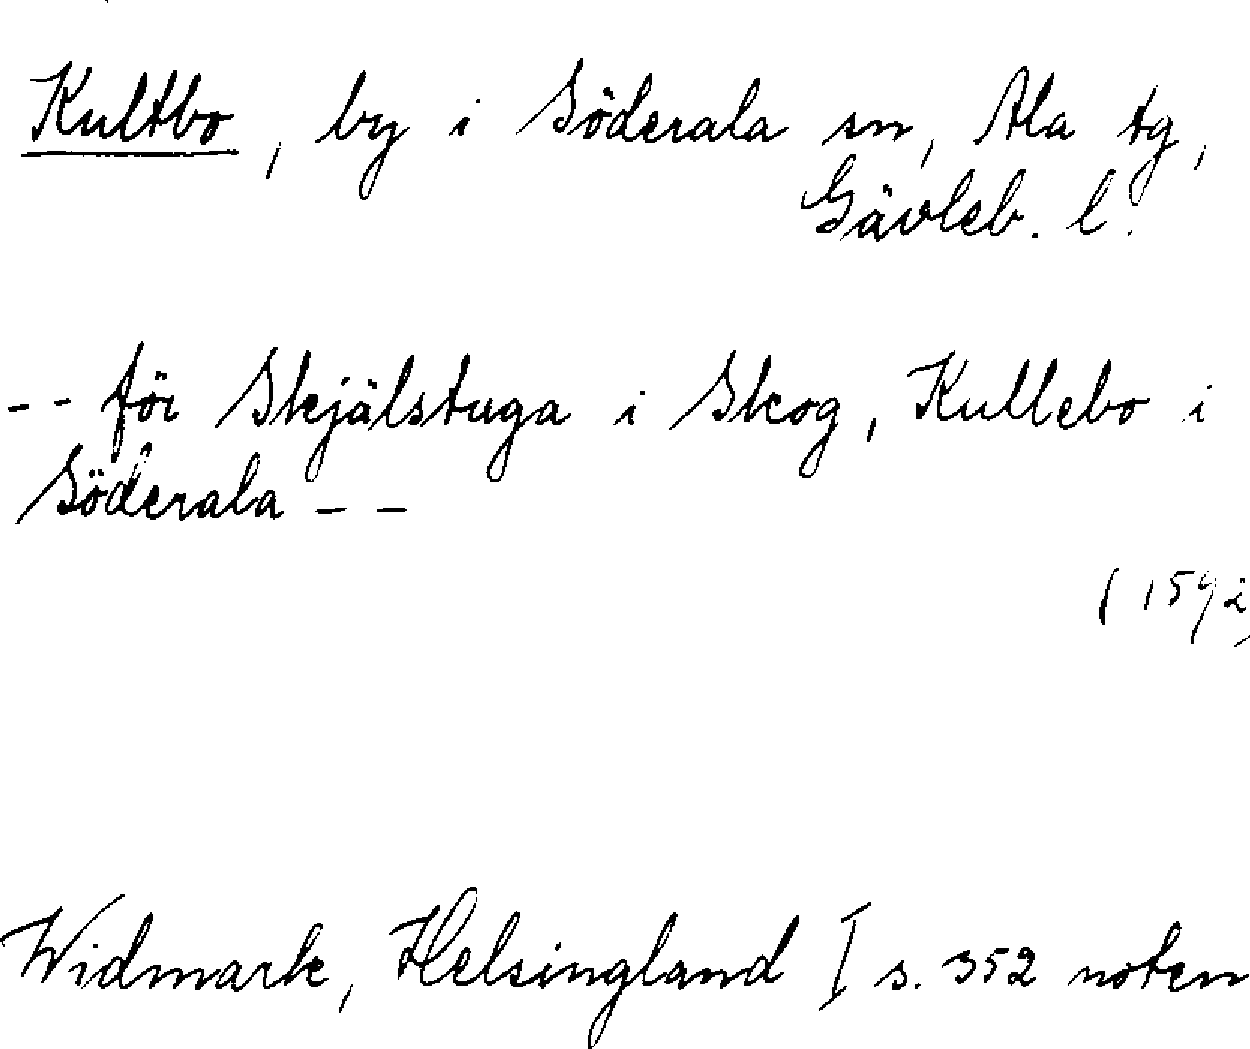 Kultbo, by i Söderala sn, Ala tg,
Gävleb. l.
-- för Skjälstuga i Skog, Kullebo i
Söderala --
(1592)
Widmark, Helsingland I s. 352 noten